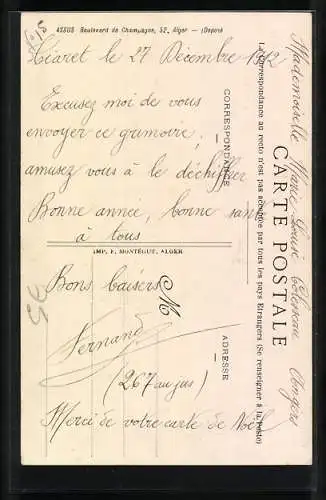 ASSUS Boulevard de Champagne, 52, Alger — (Déposé)
Tiaret le 27 Décembre 1912
Excusez moi de vous
envoyer ce grimoire,
amusez vous à le déchiffrer
Bonne année, bonne santé
à tous
IMP. F. MONTÉGUT, ALGER
Bons baisers
Fernand
(267 au jus)
Merci de votre carte de Noël
CORRESPONDANCE
ADRESSE
M
La Correspondance au recto n'est pas acceptée par tous les pays Etrangers (Se renseigner à la Poste)
CARTE POSTALE
Mademoiselle Marie Louise Angers